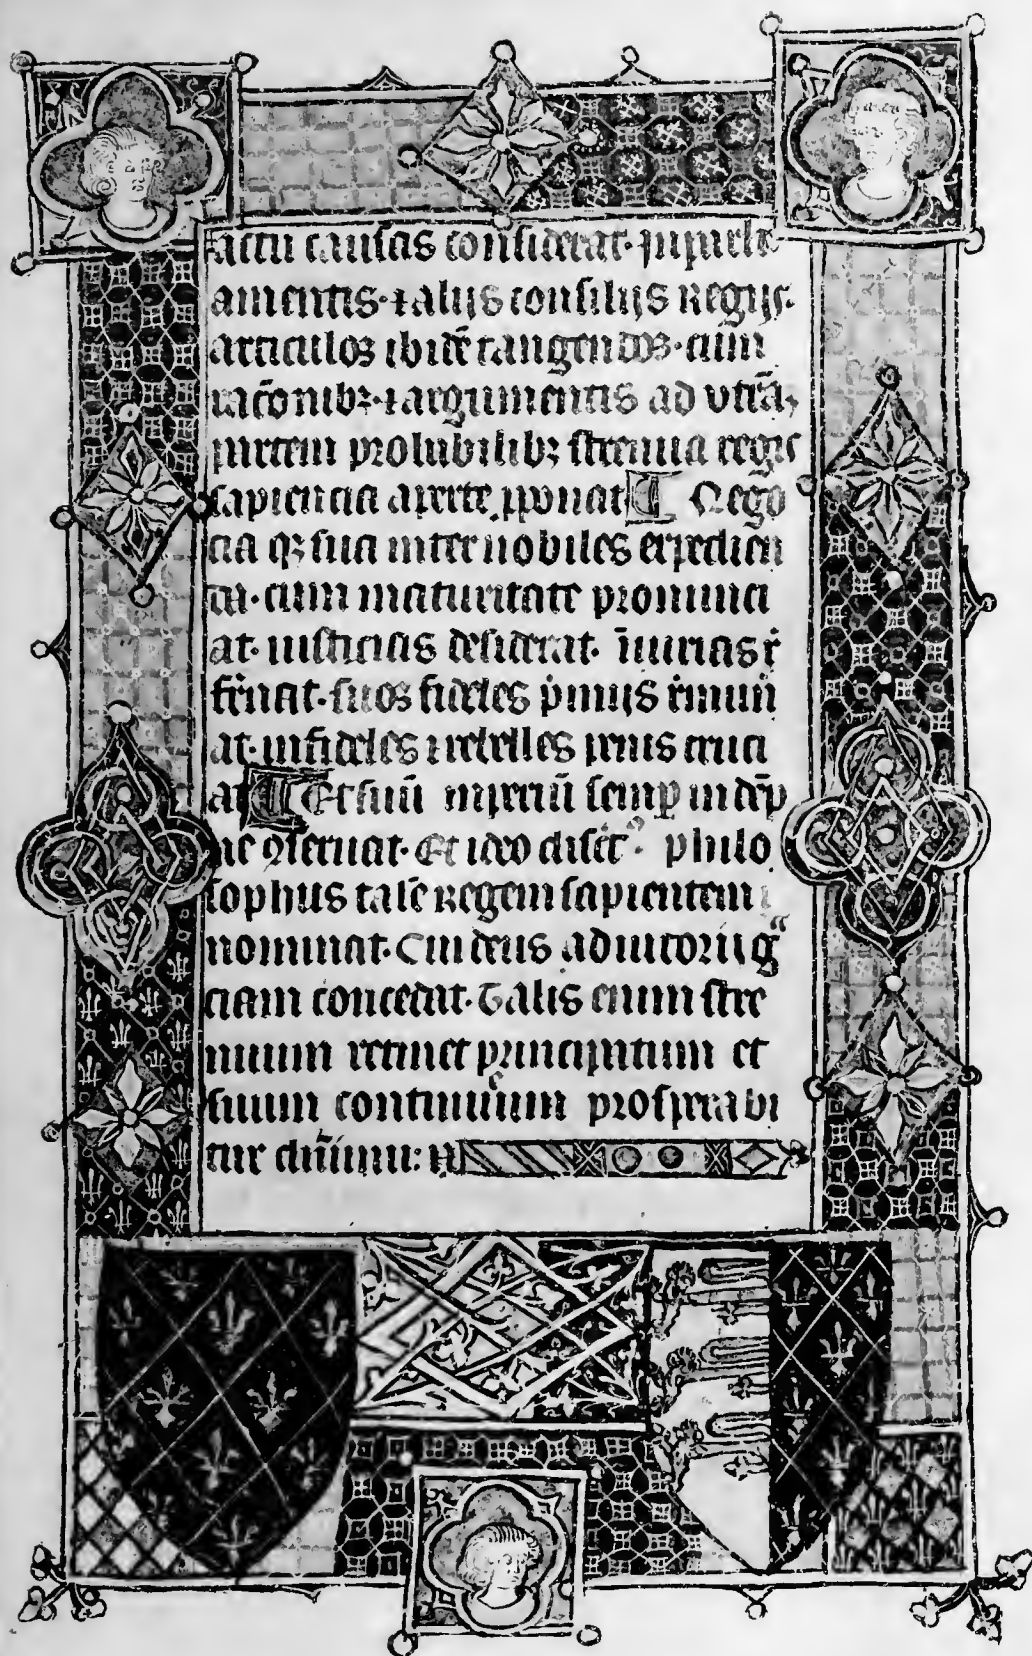 actu causas considerat. In parle
amentis. ⁊ aliis consiliis Regiis.
articulos ibidē tangendos. cum
racōnibꝫ. ⁊ argumentis ad vtrāꝫ
partem probabilibꝫ strenua regis
sapiencia aperte ꝓponat ¶ Nego
cia qꝫ sua inter nobiles expedien
da. cum maturitate pronunci
at. iusticias desiderat. īiurias r̄
frenat. suos fideles p̄miis r̄mun̄
at. infideles ⁊ rebelles penis cruci
at ¶ Et suū imperiū semꝑ indēp
ne ꝯseruat. Et ideo
philo
sophus talē Regem sapientem
nominat. Cui deus
ciam concedat. Talis enim stre
nuum retinet principatum et
suum continuum prosperabi
tur